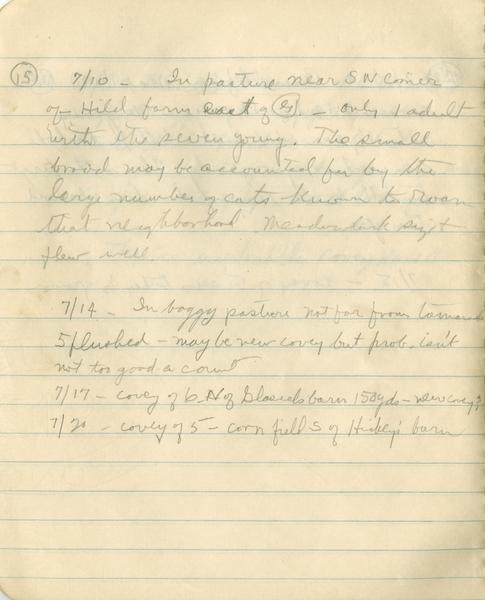 (5) 7/10 - In pasture near SW corner
of Hild farm east of - only 1 adult
with its seven young. The small
brood may be accounted for by the
large number of cats known to roam
that neighborhood Meadowlark size
flew well
7/14 - In boggy pasture not far from tamarack
5 flushed - may be new covey but prob. isn't
not too good a count
7/17 - covey of 6 N of barn 150 yds - new covey?
7/20 - covey of 5 - corn field S of Hickey's barn